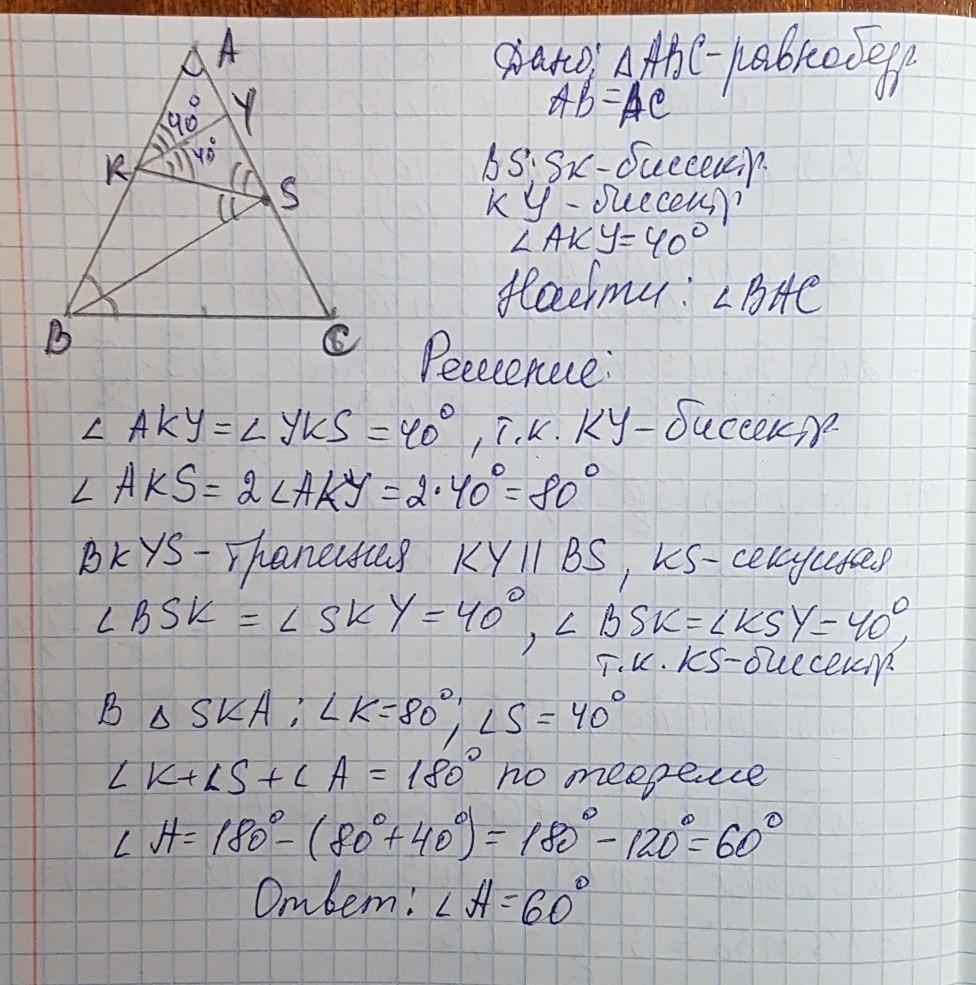 A
40° Y
K 40° S
B C
Дано: △ABC-равнобедр
AB=AC
BS; SK-биссектр.
KY-биссектр
∠AKY=40°
Найти: ∠BAC
Решение:
∠AKY=∠YKS=40°, т.к. KY-биссектр.
∠AKS=2∠AKY=2·40°=80°
BKYS-трапеция KY||BS, KS-секущая
∠BSK=∠SKY=40°, ∠BSK=∠KSY=40°,
т.к. KS-биссектр.
В △SKA: ∠K=80°; ∠S=40°
∠K+∠S+∠A=180° по теореме
∠A=180°-(80°+40°)=180°-120°=60°
Ответ: ∠A=60°